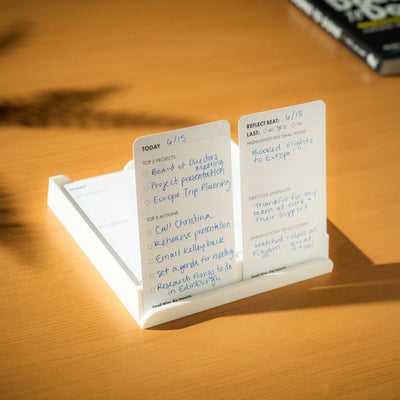 TODAY 6/15
TOP 3 PROJECTS
Board of Directors meeting
Project presentation
Europe Trip Planning
TOP 5 ACTIONS
Call Christina
Rehearse presentation
Email Kelley back
set agenda for meeting
Research things to do
in Edinburgh
Small Wins. Big Impact.
REFLECT BEAT: 6/15
LAST:
HIGHLIGHTED ANY SMALL WINS?
Booked flights
to Europe!
GRATITUDE SNAPSHOT
Thankful for my
team at work +
their support
LEARNING POINT OR DISCOVERY
Watched + ideas on
Figjam - great
tool!
Small Wins. Big Impact.
TODAY